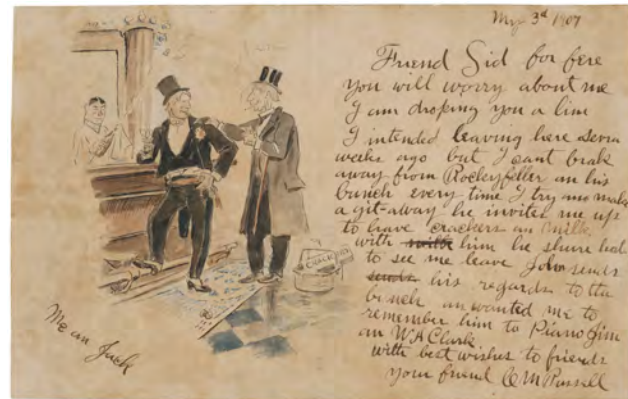 May 3d 1907
Friend Sid for fere
you will worry about me
I am droping you a line
I intended leaving here
weeks ago but I cant brak
away from Rockeyfeller an his
bunch every time I try an make
a git-away he invites me up
to have crackers an milk
with him he shure
to see me leave John sends
sends his regards to the
bunch an wanted me to
remember him to Piano Jim
an W A Clark
with best wishes to friends
your friend C M Russell
Me an Jack